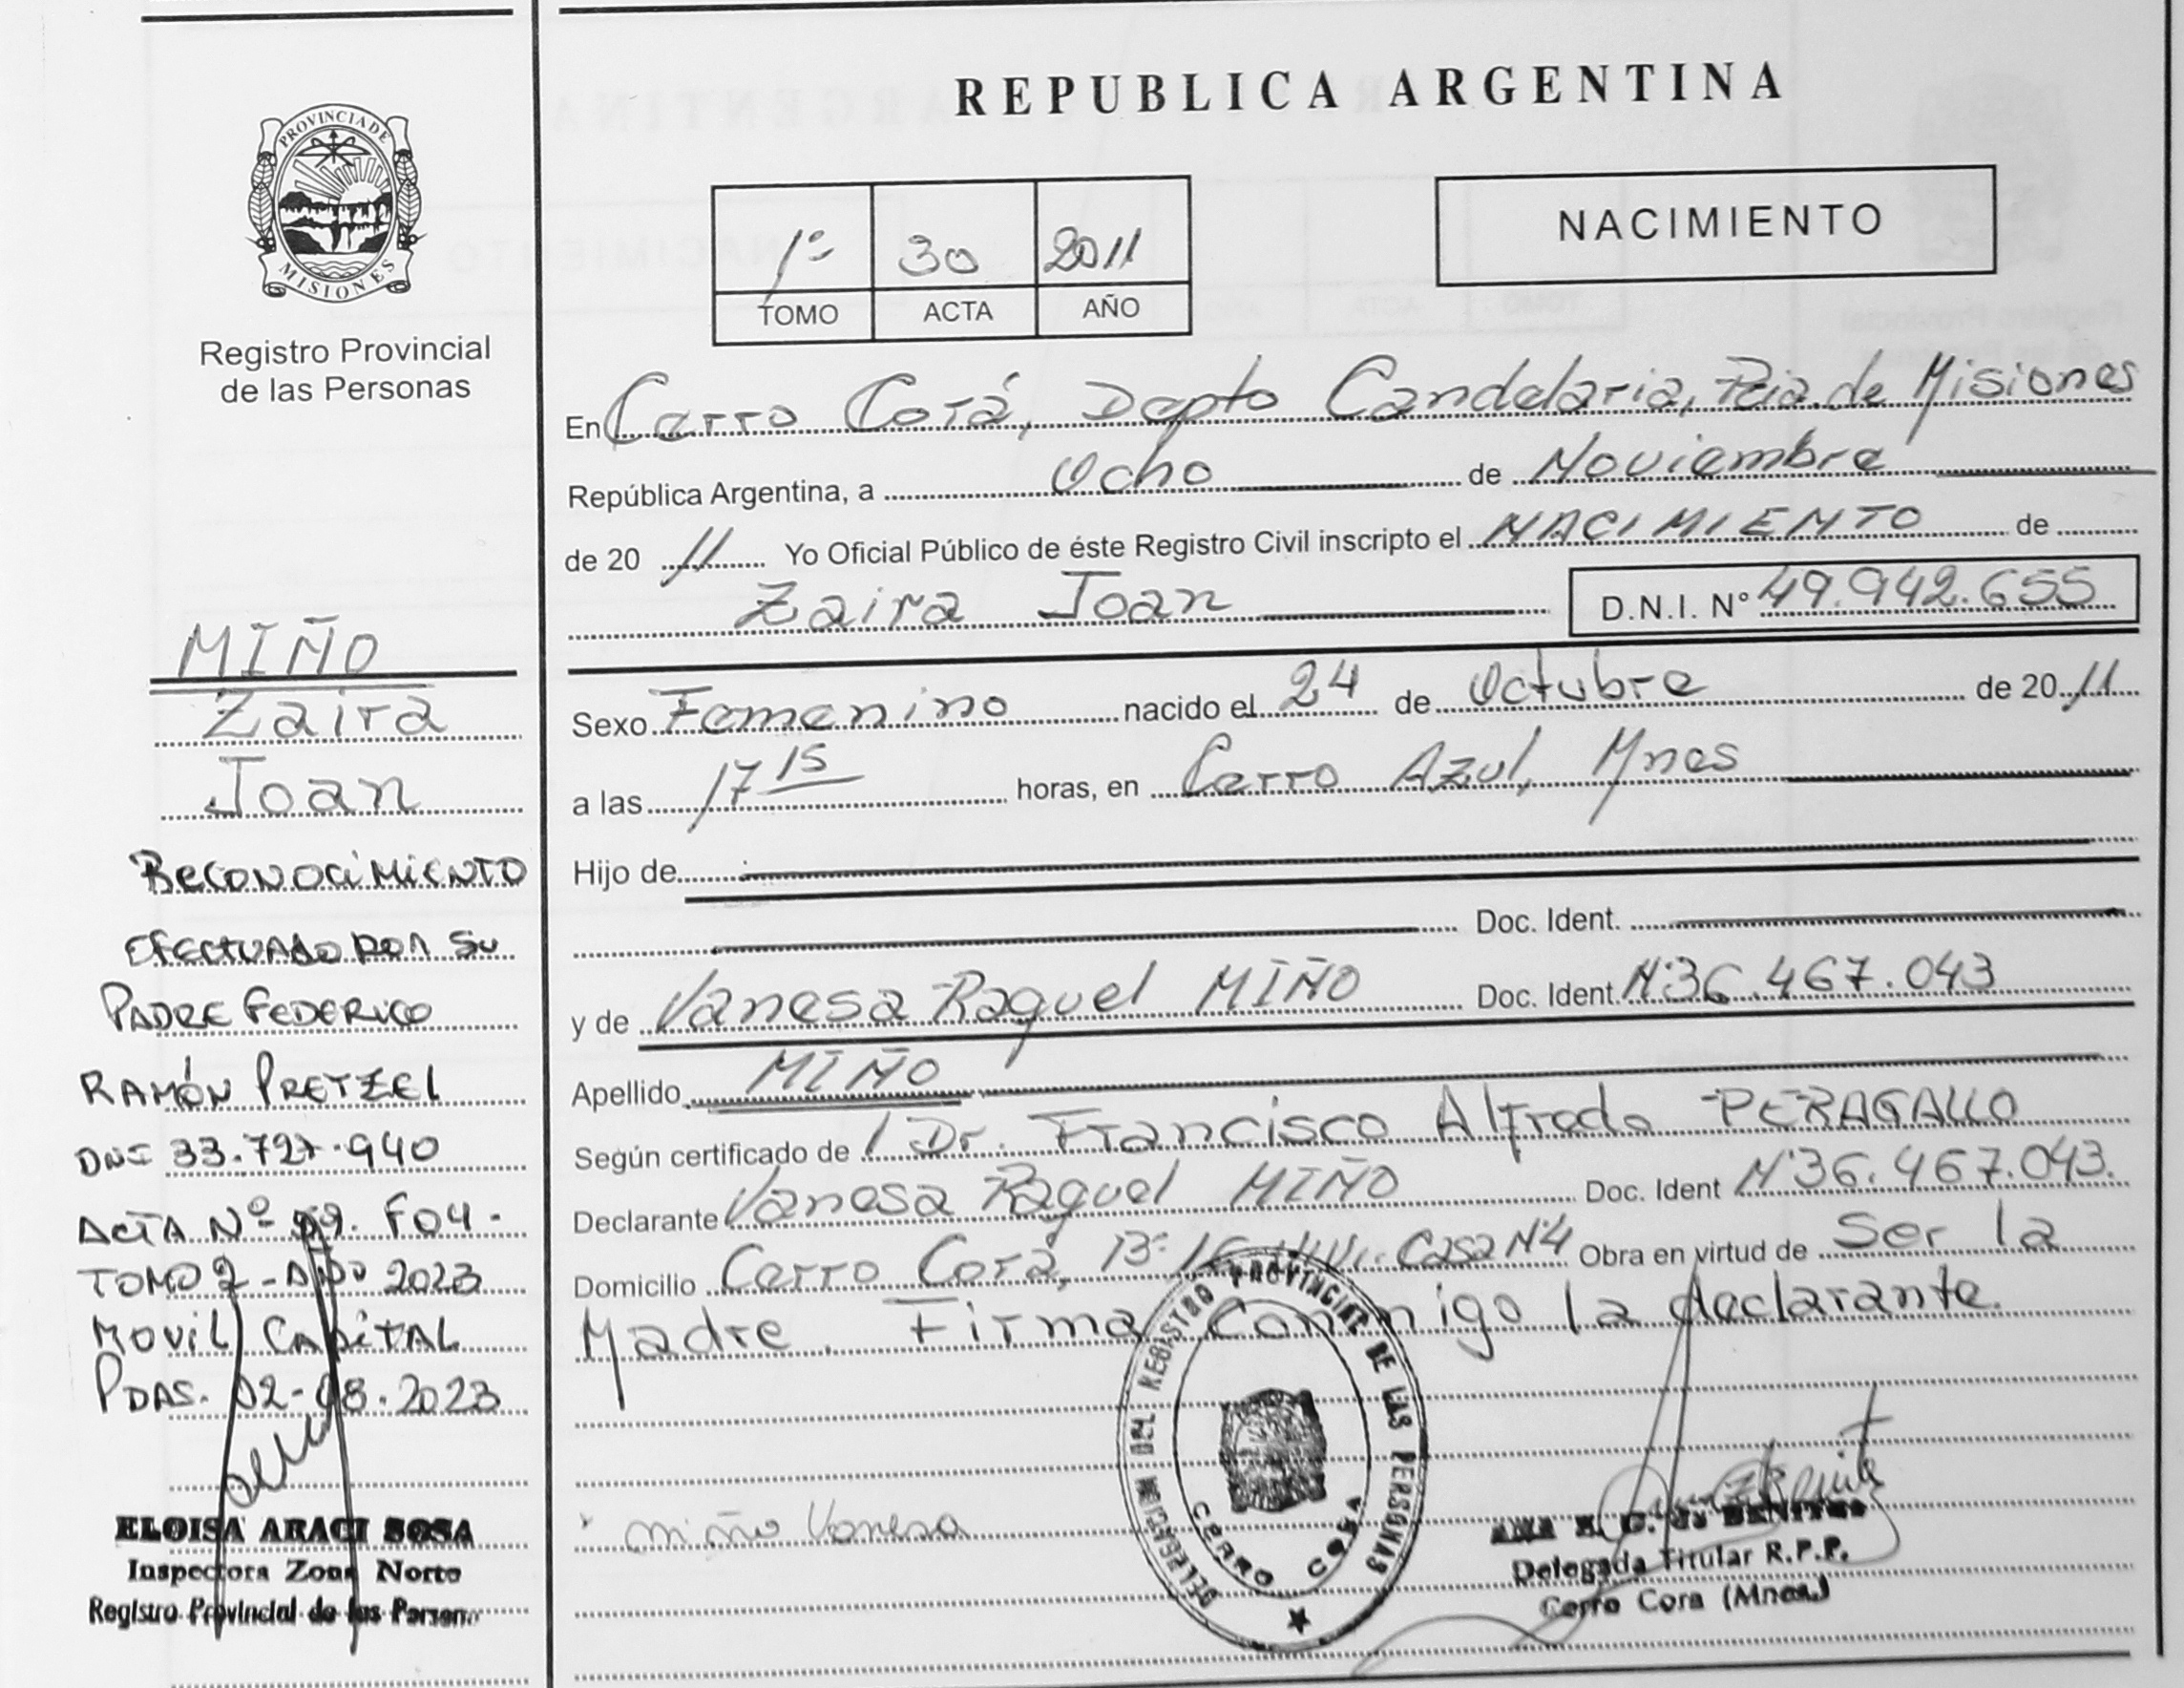 REPUBLICA ARGENTINA
PROVINCIA DE
MISIONES
Registro Provincial
de las Personas
1º 30 2011
TOMO ACTA AÑO
NACIMIENTO
En Cerro Corá, Depto Candelaria, Pcia. de Misiones
República Argentina, a Ocho de Noviembre
de 20 11 Yo Oficial Público de éste Registro Civil inscripto el NACIMIENTO de
Zaira Joan D.N.I. Nº 49.942.655
Sexo Femenino nacido el 24 de Octubre de 20 11
a las 17 15 horas, en Cerro Azul, Mnes
Hijo de
Doc. Ident.
y de Vanesa Raquel MIÑO Doc. Ident. Nº 36.467.043
Apellido MIÑO
Según certificado de Dr. Francisco Alfredo PERAGALLO
Declarante Vanesa Raquel MIÑO Doc. Ident Nº 36.467.043.
Domicilio Cerro Corá, Bº 16 Viv. Casa Nº4 Obra en virtud de Ser la
Madre. Firma Conmigo la declarante.
Miño Vanesa
DELEGACION DEL REGISTRO PROVINCIAL DE LAS PERSONAS
CERRO CORA
ANA E. G. de BENITEZ
Delegada Titular R.P.P.
Cerro Cora (Mnes.)
MIÑO
Zaira
Joan
Reconocimiento
Efectuado por su
Padre Federico
Ramón Pretzel
DNI 33.727.940
Acta Nº F04.
Tomo 2 - Año 2023
Movil Capital
Pdas. 02-08-2023
ELOISA ARACI SOSA
Inspectora Zona Norte
Registro Provincial de las Person.